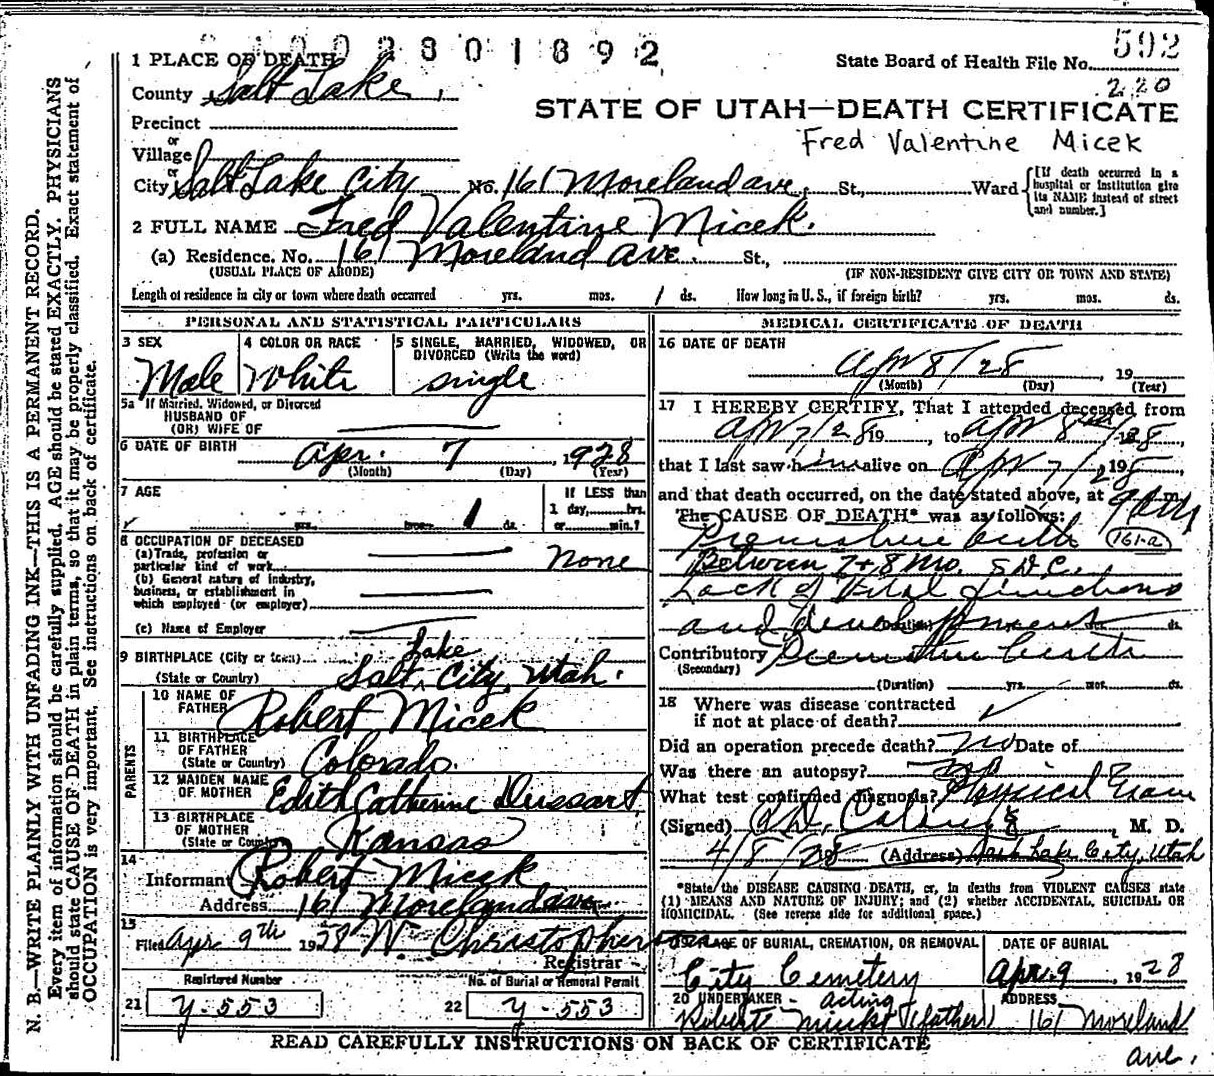 2801892
592
State Board of Health File No.
220
1 PLACE OF DEATH
County Salt Lake
STATE OF UTAH—DEATH CERTIFICATE
Precinct
Fred Valentine Micek
or
Village
or
City Salt Lake City No. 161 Moreland ave. St., Ward
[If death occurred in a hospital or institution give its NAME instead of street and number.]
2 FULL NAME Fred Valentine Micek.
(a) Residence. No. 161 Moreland Ave. St.,
(USUAL PLACE OF ABODE) (IF NON-RESIDENT GIVE CITY OR TOWN AND STATE)
Length of residence in city or town where death occurred yrs. mos. 1 ds. How long in U. S., if foreign birth? yrs. mos. ds.
PERSONAL AND STATISTICAL PARTICULARS
3 SEX
Male
4 COLOR OR RACE
White
5 SINGLE, MARRIED, WIDOWED, OR DIVORCED (Write the word)
single
5a If Married, Widowed, or Divorced
HUSBAND OF
(OR) WIFE OF
6 DATE OF BIRTH Apr. 7, 1928
(Month) (Day) (Year)
7 AGE
yrs. mos. 1 ds.
If LESS than
1 day, hrs.
or min.?
8 OCCUPATION OF DECEASED
(a) Trade, profession or
particular kind of work None
(b) General nature of industry,
business, or establishment in
which employed (or employer)
(c) Name of Employer
9 BIRTHPLACE (City or town)
(State or Country) Salt Lake City, Utah.
PARENTS
10 NAME OF FATHER Robert Micek
11 BIRTHPLACE OF FATHER (State or Country) Colorado.
12 MAIDEN NAME OF MOTHER Edith Catherine Dussart
13 BIRTHPLACE OF MOTHER (State or Country) Kansas
14
Informant Robert Micek
Address 161 Moreland ave.
15
Filed Apr. 9th 1928 W. Christopherson
Registrar
Registered Number
21 y-553
No. of Burial or Removal Permit
22 y-553
MEDICAL CERTIFICATE OF DEATH
16 DATE OF DEATH
Apr 8/28, 19
(Month) (Day) (Year)
17 I HEREBY CERTIFY, That I attended deceased from
Apr 7/28 19, to Apr 8 1928,
that I last saw him alive on Apr 7/ 1928,
and that death occurred, on the date stated above, at 9 am
The CAUSE OF DEATH* was as follows:
Premature birth 161-a
Between 7 & 8 Mo.
Lack of Vital functions
and development
(Duration) ds.
Contributory Premature birth
(Secondary)
(Duration) yrs. mos. ds.
18 Where was disease contracted
if not at place of death?
Did an operation precede death? No Date of
Was there an autopsy? No
What test confirmed diagnosis? Physical Exam
(Signed), M. D.
4/8/28 (Address) Salt Lake City, Utah
*State the DISEASE CAUSING DEATH, or, in deaths from VIOLENT CAUSES state
(1) MEANS AND NATURE OF INJURY; and (2) whether ACCIDENTAL, SUICIDAL OR
HOMICIDAL. (See reverse side for additional space.)
19 PLACE OF BURIAL, CREMATION, OR REMOVAL
City Cemetery
DATE OF BURIAL
Apr. 9 1928
20 UNDERTAKER - acting
Robert Micek (father)
ADDRESS
161 Moreland
ave.
READ CAREFULLY INSTRUCTIONS ON BACK OF CERTIFICATE
N. B.—WRITE PLAINLY WITH UNFADING INK—THIS IS A PERMANENT RECORD.
Every item of information should be carefully supplied. AGE should be stated EXACTLY. PHYSICIANS
should state CAUSE OF DEATH in plain terms, so that it may be properly classified. Exact statement of
OCCUPATION is very important. See instructions on back of certificate.